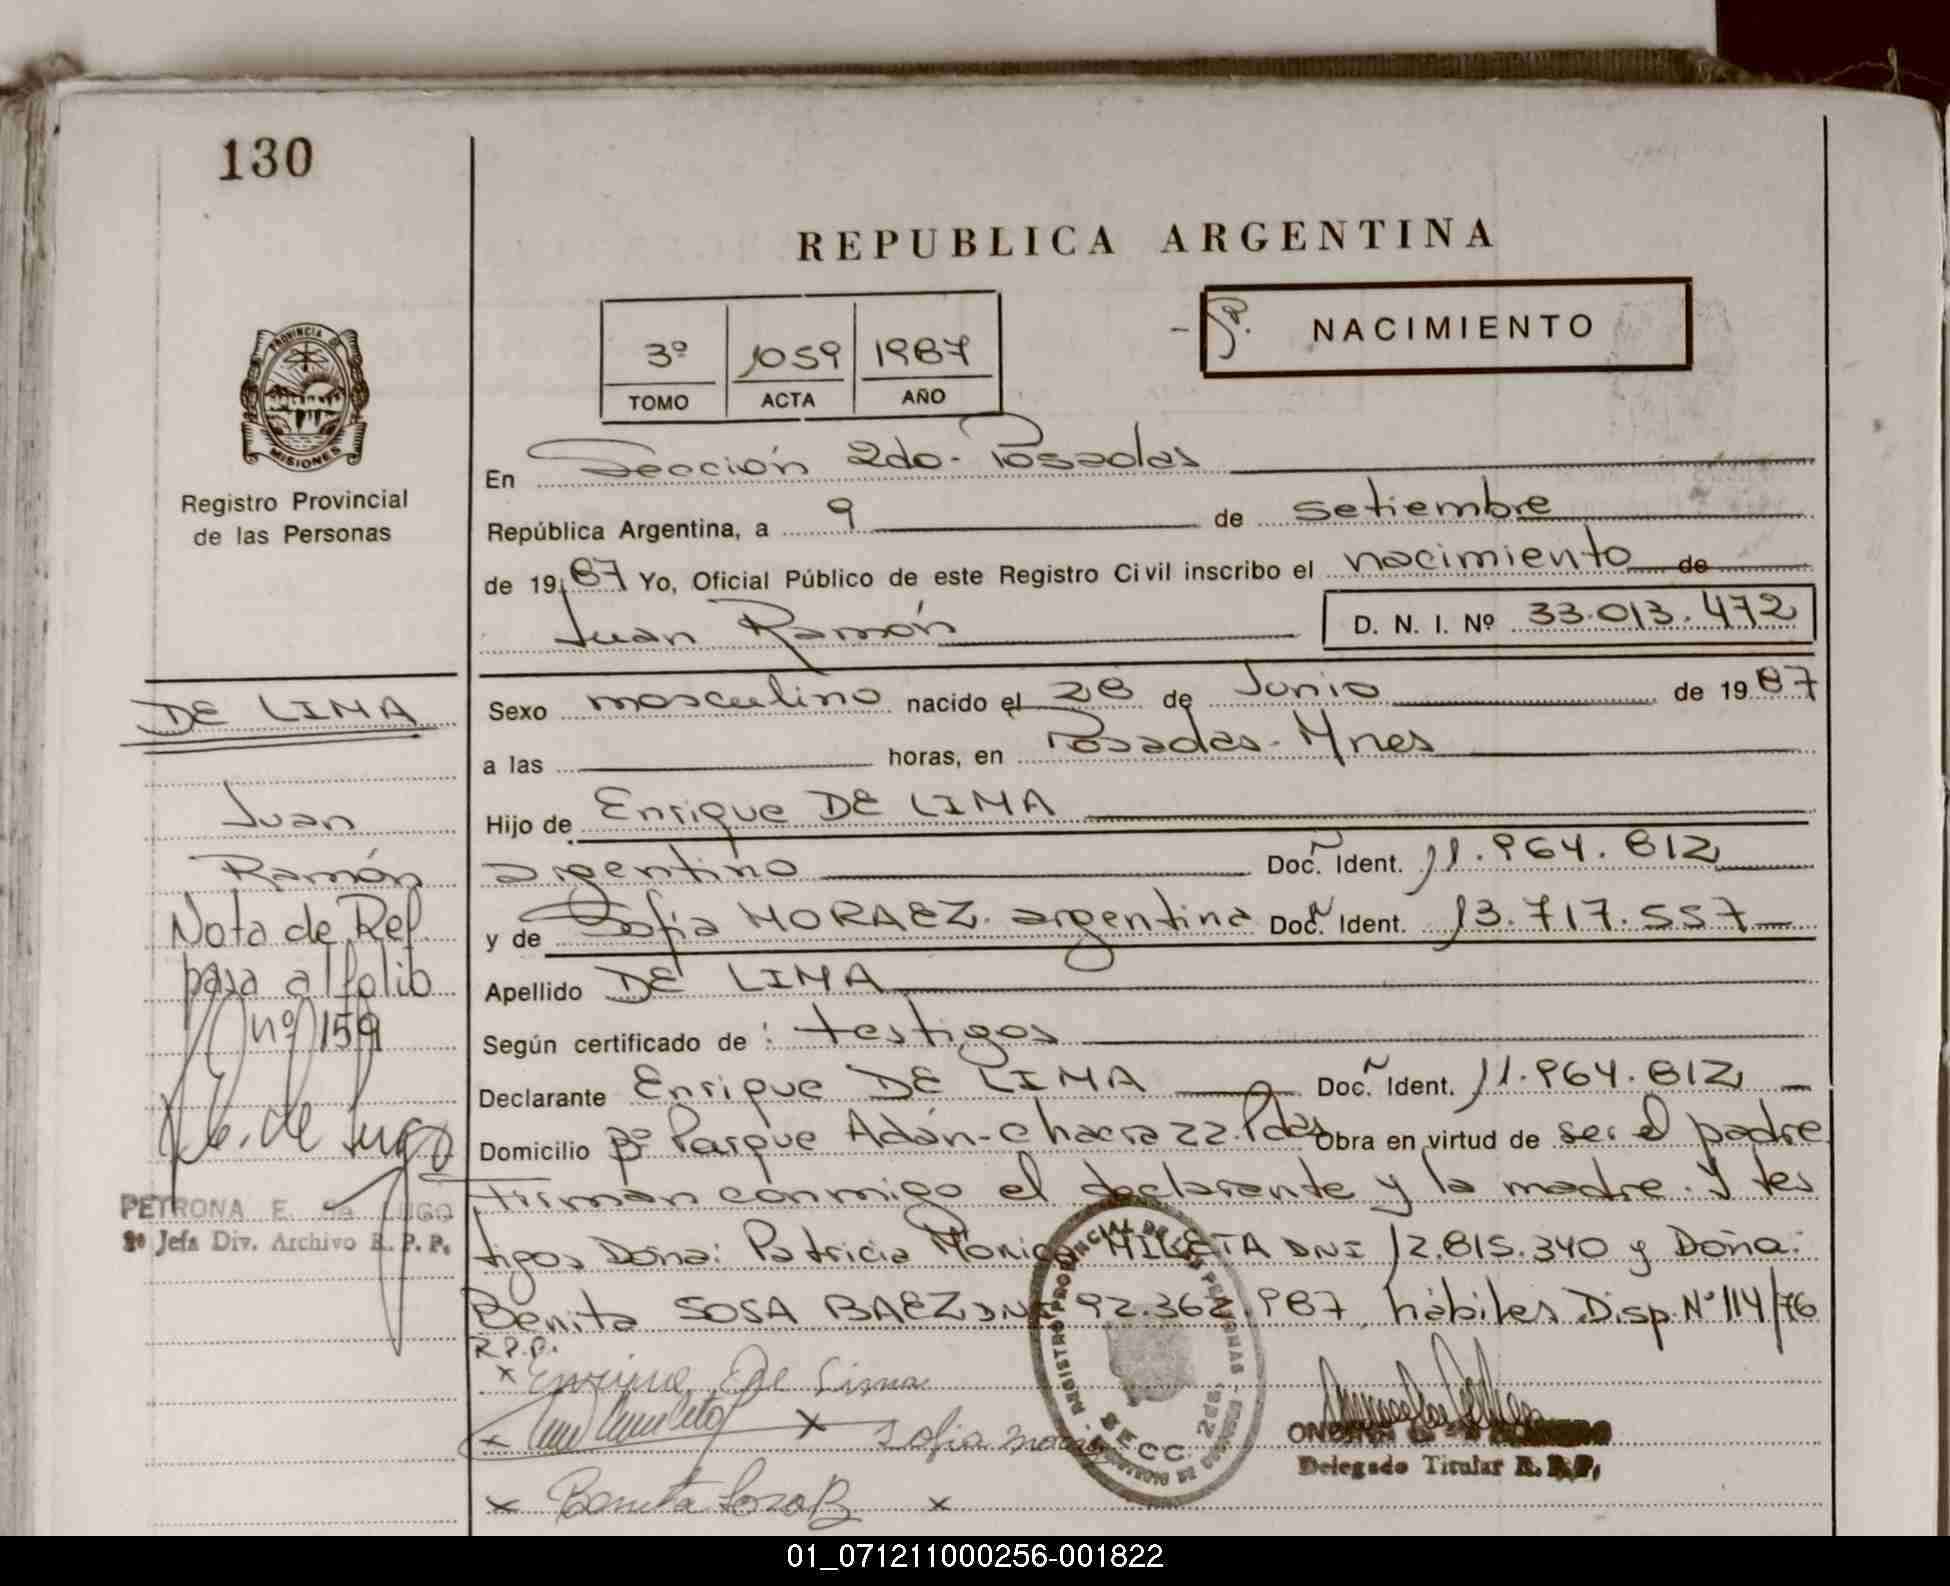 130
REPUBLICA ARGENTINA
NACIMIENTO
3º 1059 1987
TOMO ACTA AÑO
PROVINCIA DE
MISIONES
Registro Provincial
de las Personas
En Sección 2do- Posadas
República Argentina, a 9 de setiembre
de 1987 Yo, Oficial Público de este Registro Civil inscribo el nacimiento de
Juan Ramón D. N. I. Nº 33.013.472
DE LIMA
Juan
Ramón
Nota de Ref.
pasa al folio
nº 159
PETRONA E. de LUGO
Jefa Div. Archivo R. P. P.
Sexo masculino nacido el 28 de Junio de 1987
a las horas, en Posadas- Mnes
Hijo de Enrique DE LIMA
argentino Doc. Ident. 11.964.812
y de Sofia MORAEZ. argentina Doc. Ident. 13.717.557
Apellido DE LIMA
Según certificado de : testigos
Declarante Enrique DE LIMA Doc. Ident. 11.964.812
Domicilio Bº Parque Adán-chacra 22. Pdas Obra en virtud de ser el padre
Firman conmigo el declarante y la madre. Y tes
tigos Doña: Patricia Monica MILETA DNI 12.815.340 y Doña:
Benita SOSA BAEZ DNI 92.362.987 hábiles. Disp. Nº 114/76
R.P.P.
x Enrique De Lima
x x Sofia
x Benita Sosa B x
REGISTRO PROVINCIAL DE LAS PERSONAS
SECC. 2da.
Delegado Titular R.P.P.
01_071211000256-001822